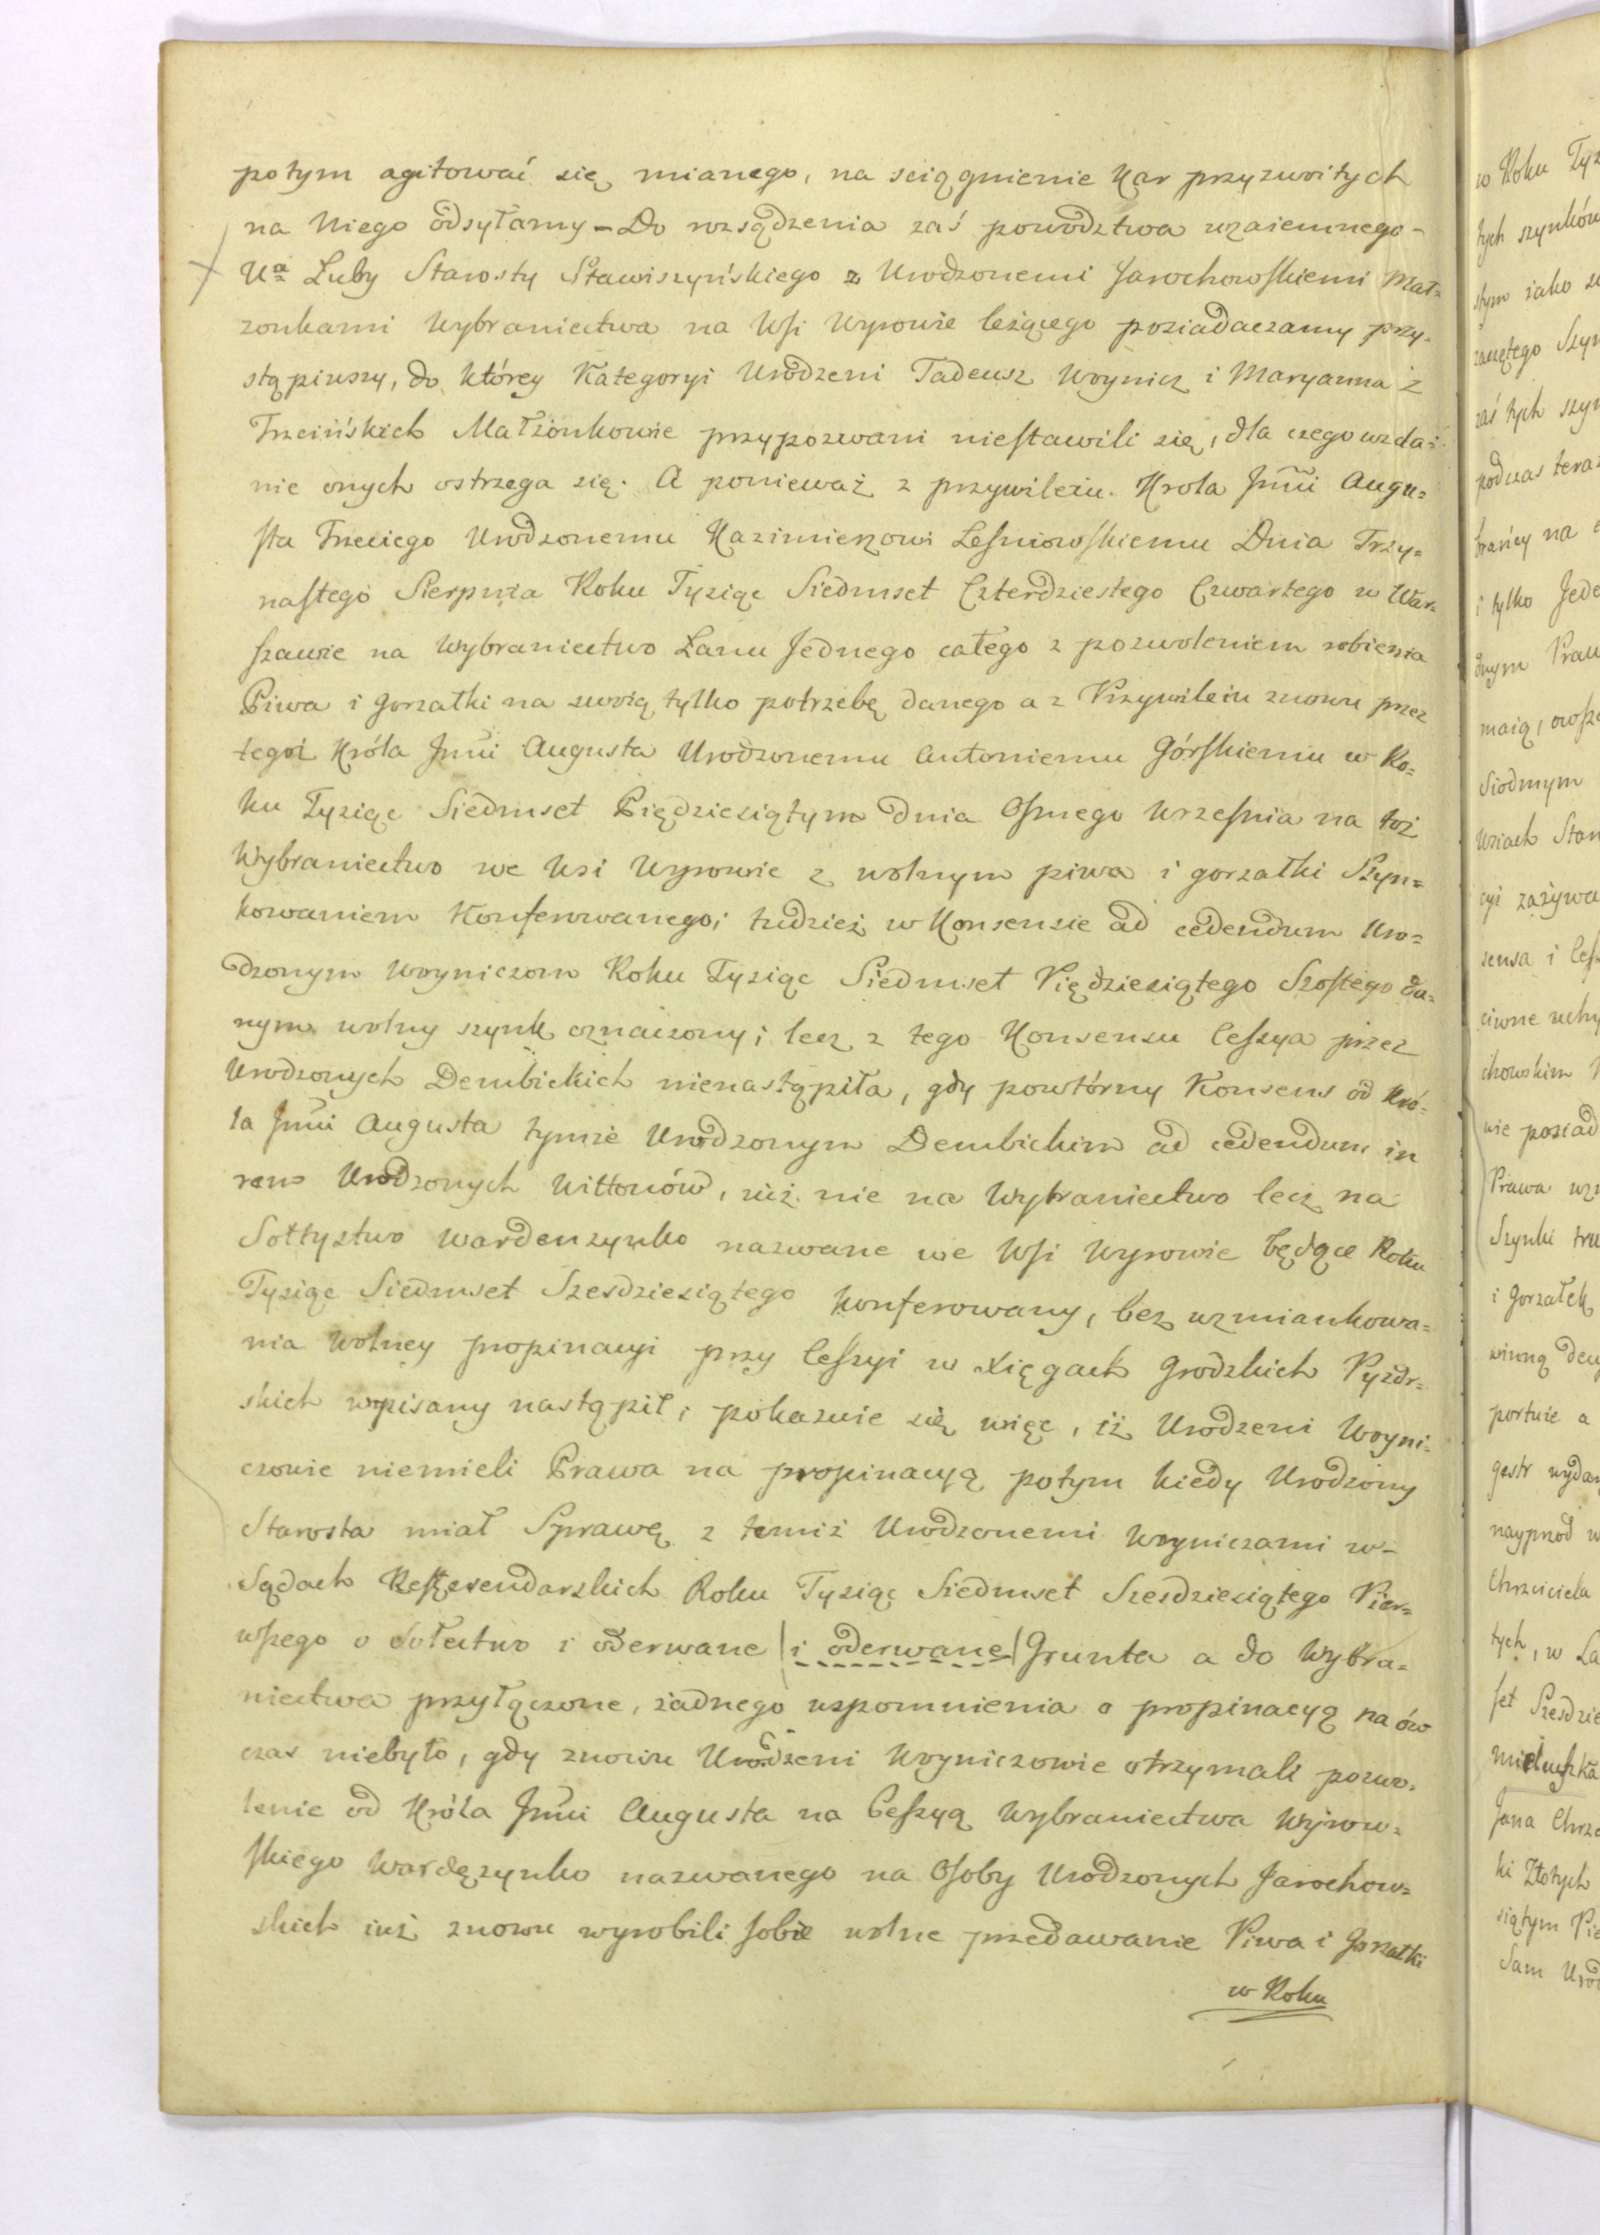 potym agitować się mianego, na sciągnienie Kar przyzwoitych
na Niego odsyłamy – Do rozsądzenia zaś powodztwa wzaiemnego –
Uª Luby Starosty Stawiszyńskiego z Urodzonemi Jarochowskiemi Mał=
zonkami Wybraniectwa na Wsi Wyrowie leżącego posiadaczamy przy-
stąpiwszy, do którey Kategoryi Urodzeni Tadeusz Woynicz i Maryanna z
Trzcińskich Małżonkowie przypozwani niestawili się, dla czego wzda=
nie onych ostrzega się. A ponieważ z przywileiu Krola Jmci Augu=
sta Trzeciego Urodzonemu Kazimierzowi Lesniowskiemu Dnia Trzy=
nastego Sierpnia Roku Tysiąc Siedmset Czterdziestego Czwartego w War=
szawie na Wybraniectwo Łanu Jednego całego z pozwoleniem robienia
Piwa i gorzałki na swoią tylko potrzebę danego a z Przywileiu znowu przez
tegoż Króla Jmci Augusta Urodzonemu Antoniemu Górskiemu w Ro=
ku Tysiąc Siedmset Pięcdziesiątym dnia Osmego Wrzesnia na toż
Wybraniectwo we Wsi Wyrowie z wolnym piwa i gorzałki Szyn=
kowaniem Konferowanego; tudzież w Konsensie ad cedendum Uro=
dzonym Woyniczom Roku Tysiąc Siedmset Pięcdziesiątego Szostego da=
nym wolny szynk oznaczony; lecz z tego Konsensu Cessya przez
Urodzonych Dembickich nienastąpiła, gdy powtórny Konsens od Kró=
la Jmci Augusta tymże Urodzonym Dembickim ad cedendum in
rem Urodzonych Wittonów, iuż nie na Wybraniectwo lecz na
Sołtystwo Wardenzynko nazwane we Wsi Wyrowie będące Roku
Tysiąc Siedmset Szesdziesiątego konferowany, bez wzmiankowa=
nia Wolney propinacyi przy Cessyi w Xięgach Grodzkich Pyzdr=
skich wpisany nastąpił; pokazuie się więc, iż Urodzeni Woyni=
czowie niemieli Prawa na propinacyą potym kiedy Urodzony
Starosta miał Sprawę z temiż Urodzonemi Woyniczami w=
Sądach Referendarskich Roku Tysiąc Siedmset Szesdziesiątego Pier=
wszego o Sołectwo i oderwane |i oderwane| Grunta a do Wybra=
niectwa przyłączone, żadnego wspomnienia o propinacyą na ów
czas niebyło, gdy znowu Urodzeni Woyniczowie otrzymali pozwo=
lenie od Króla Jmci Augusta na Cessyą Wybraniectwa Wyrow=
skiego Wardęzynko nazwanego na Osoby Urodzonych Jarochow=
skich iuż znowu wyrobili sobie wolne przedawanie Piwa i Gorzałki
w Roku